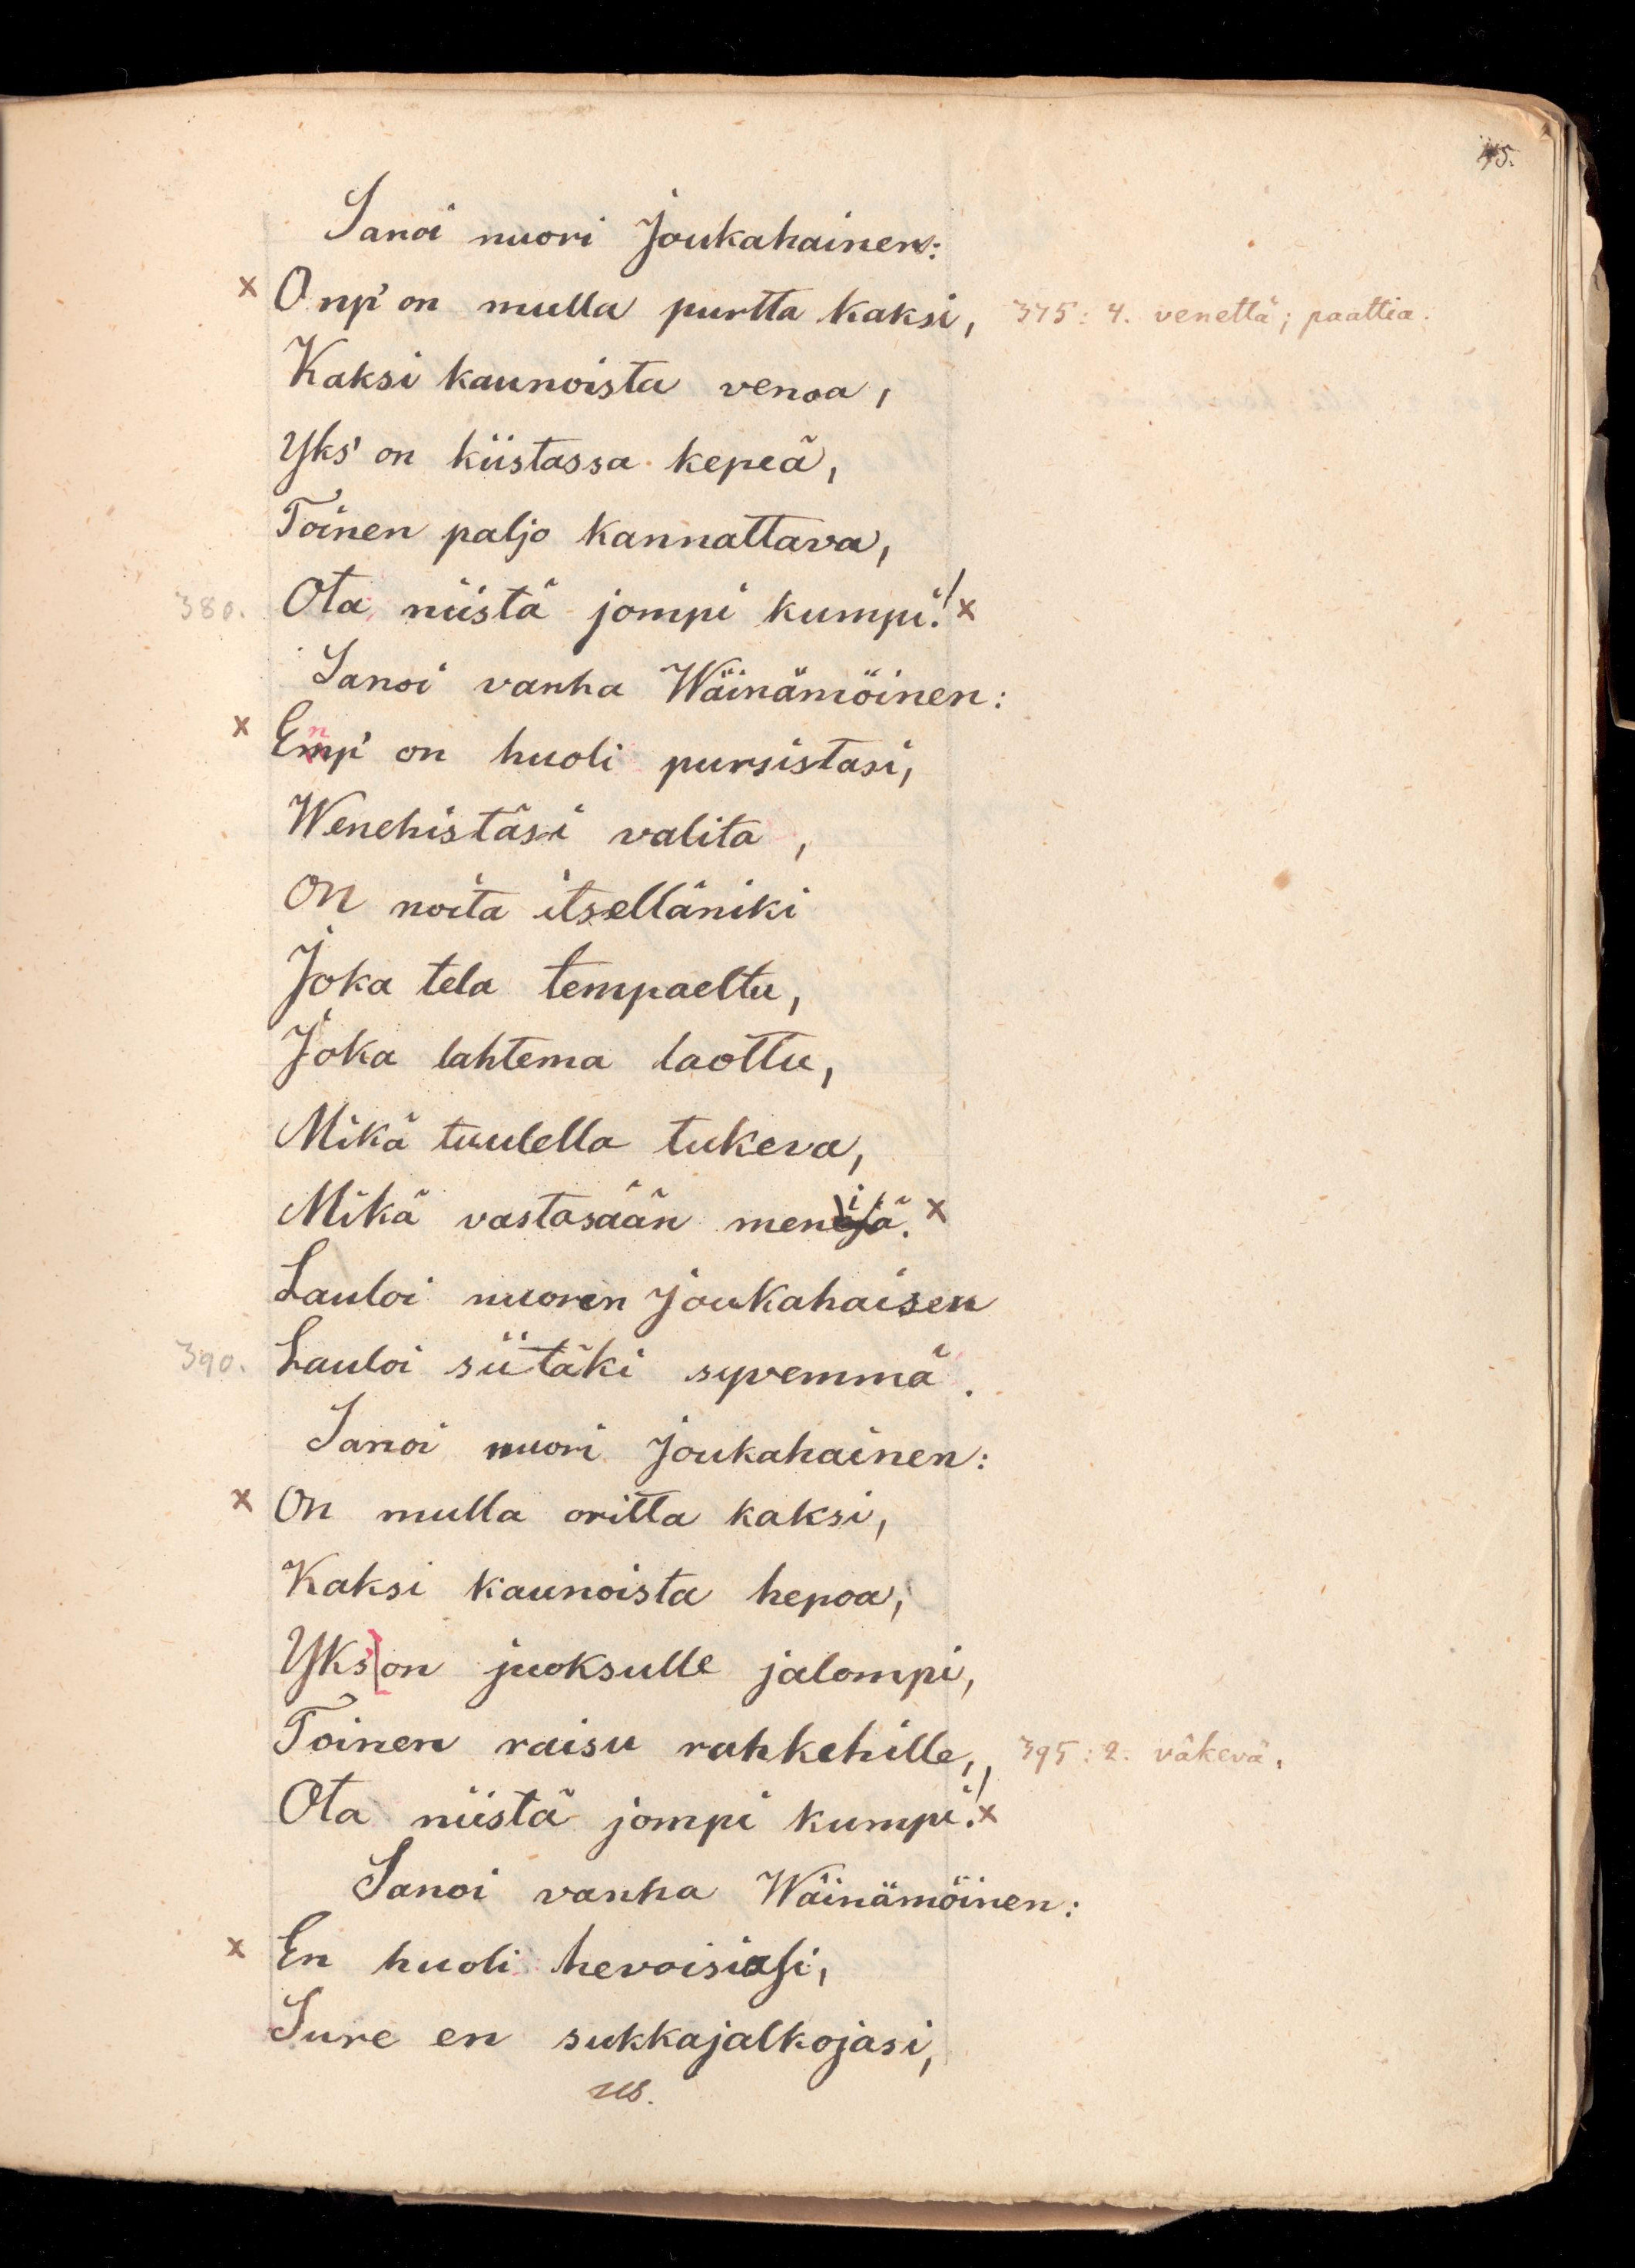 45.
Sanoi nuori Joukahainen:
x Onp' on mulla purtta kaksi, 375: 4. venettä; paattia.
Kaksi kaunoista venoa,
Yks' on kiistassa kepeä,
Toinen paljo kannattava,
380. Ota niistä jompi kumpi! x
Sanoi vanha Wäinämöinen:
x Enp' on huoli pursistasi,
Wenehistäsi valita,
On noita itselläniki
Joka tela tempaeltu,
Joka lahtema laottu,
Mikä tuulella tukeva,
Mikä vastasään meniä. x
Lauloi nuoren Joukahaisen
390. Lauloi siitäki syvemmä.
Sanoi nuori Joukahainen:
x On mulla oritta kaksi,
Kaksi kaunoista hepoa,
Yks' [on juoksulle jalompi,
Toinen raisu rahkehille, 395: 2. väkevä.
Ota niistä jompi kumpi! x
Sanoi vanha Wäinämöinen:
x En huoli hevoisiasi,
Sure en sukkajalkojasi,